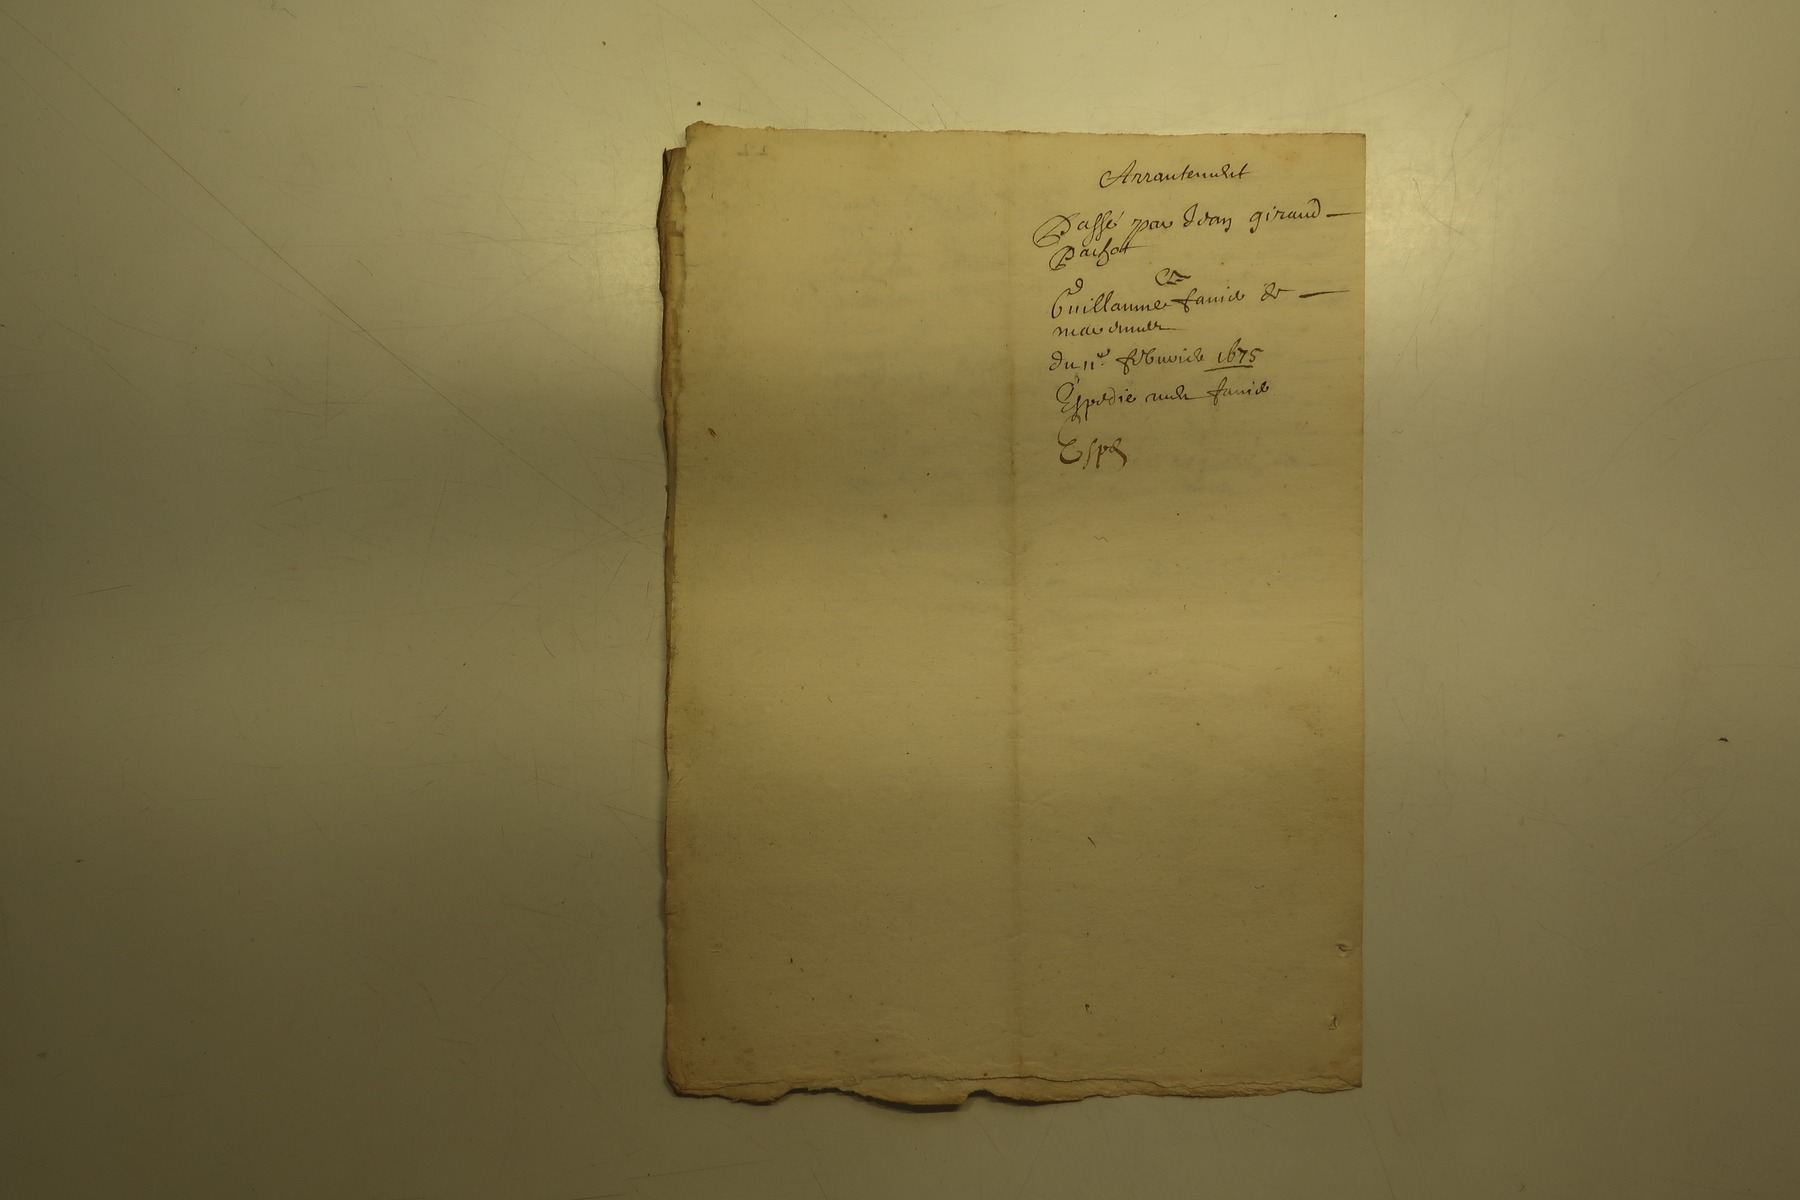 Arrantement
Passé par Jean giraud
Pachot
Et
Guillaume favier de
du 11e febvrier 1675
Expedie favier
Expé